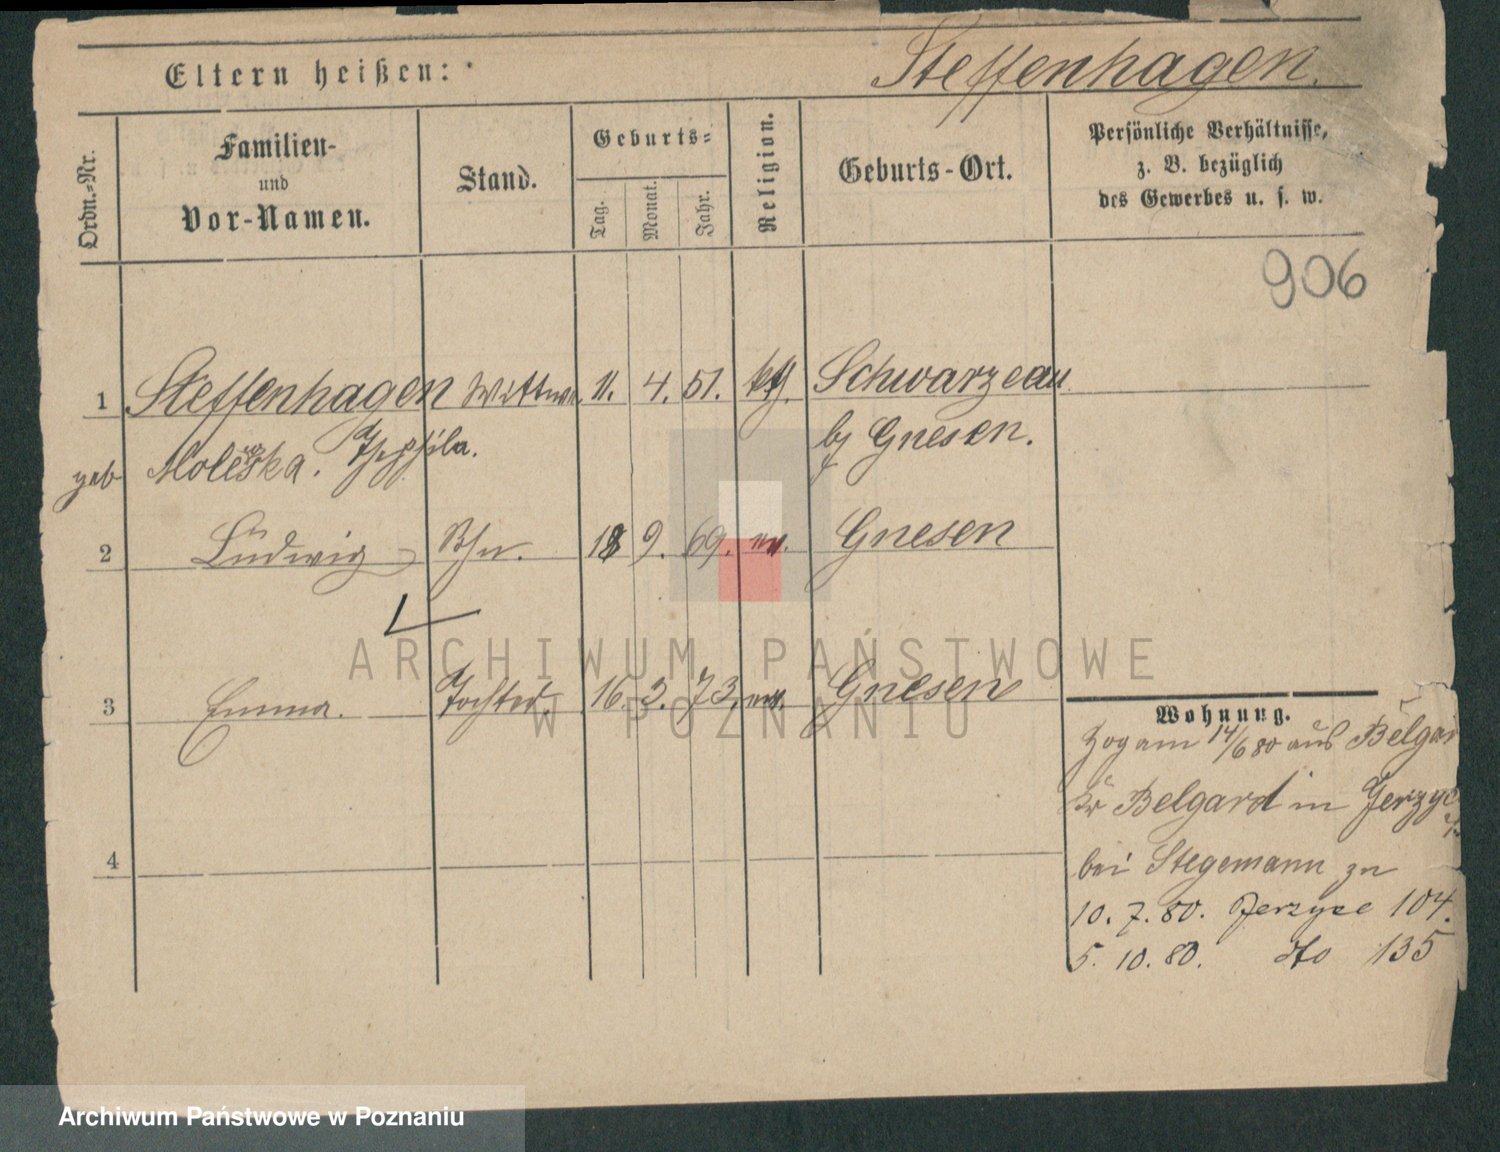 Eltern heißen:
Steffenhagen.
Ordn.=Nr.
Familien-
und
Vor-Namen.
Stand.
Geburts=
Tag.
Monat.
Jahr.
Religion.
Geburts-Ort.
Persönliche Verhältnisse,
z. B. bezüglich
des Gewerbes u. s. w.
906
1 Steffenhagen Wittwe 11. 4. 51. kth. Schwarzenau
geb Moleska. Theophila. by Gnesen.
2 Ludwig Shn. 18 9. 69. ev. Gnesen
3 Emma. Tochter 16. 3. 73. ev. Gnesen
4
Wohnung.
Zog am 14/6 80 aus Belgard
Kr Belgard in Jerzyce
bei Stegemann zu
10. 7. 80. Jerzyce 104.
5. 10. 80. dto 135
ARCHIWUM PAŃSTWOWE
W POZNANIU
Archiwum Państwowe w Poznaniu